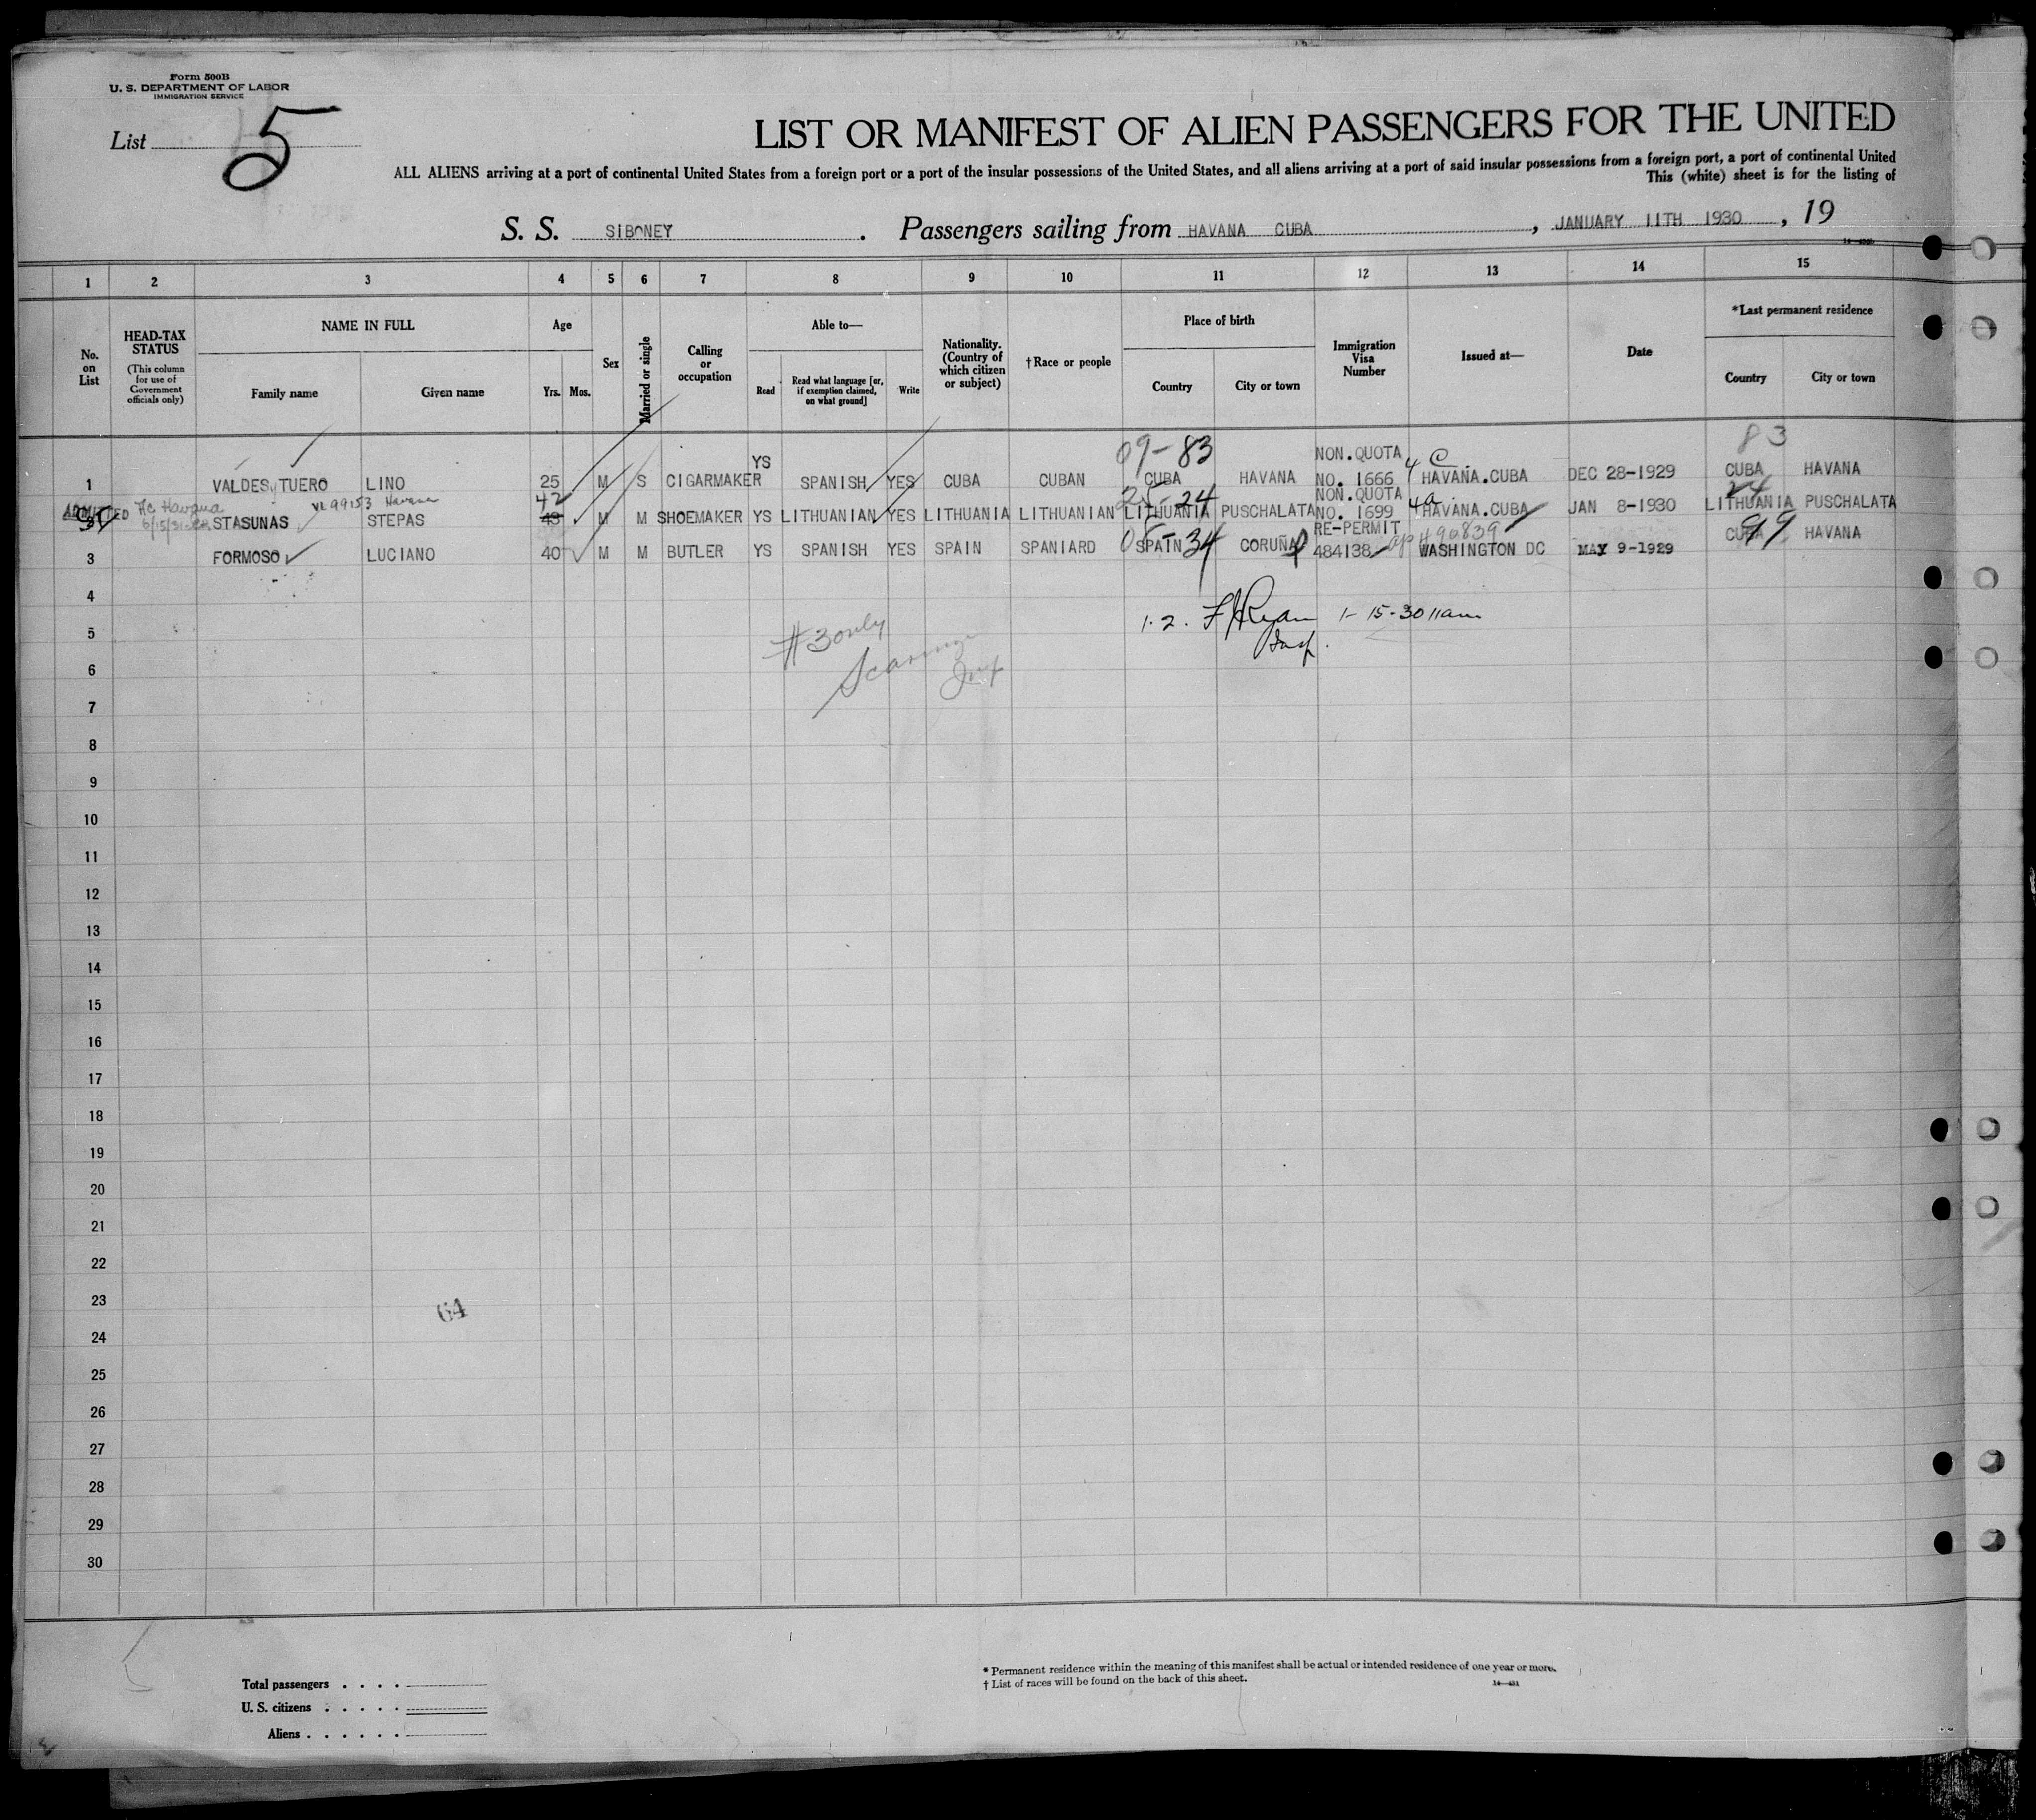 Form 500B
U. S. DEPARTMENT OF LABOR
IMMIGRATION SERVICE
List 5
LIST OR MANIFEST OF ALIEN PASSENGERS FOR THE UNITED
ALL ALIENS arriving at a port of continental United States from a foreign port or a port of the insular possessions of the United States, and all aliens arriving at a port of said insular possessions from a foreign port, a port of continental United
This (white) sheet is for the listing of
S. S. SIBONEY . Passengers sailing from HAVANA CUBA , JANUARY 11TH 1930 , 19
1 2 3 4 5 6 7 8 9 10 11 12 13 14 15
No. on List
HEAD-TAX STATUS
(This column for use of Government officials only)
NAME IN FULL
Family name Given name
Age
Yrs. Mos.
Sex
Married or single
Calling or occupation
Able to—
Read
Read what language [or, if exemption claimed, on what ground]
Write
Nationality. (Country of which citizen or subject)
†Race or people
Place of birth
Country City or town
Immigration Visa Number
Issued at—
Date
*Last permanent residence
Country City or town
09-83 NON.QUOTA 4 C 83
1 VALDES y TUERO LINO 25 M S CIGARMAKER YS SPANISH YES CUBA CUBAN CUBA HAVANA NO. 1666 HAVANA.CUBA DEC 28-1929 CUBA HAVANA
ADMITTED Havana 99153 Havana 42 25-24 NON.QUOTA 4a 24
STASUNAS STEPAS 43 M M SHOEMAKER YS LITHUANIAN YES LITHUANIA LITHUANIAN LITHUANIA PUSCHALATA NO. 1699 HAVANA.CUBA JAN 8-1930 LITHUANIA PUSCHALATA
05-34 RE-PERMIT 490839 99
3 FORMOSO LUCIANO 40 M M BUTLER YS SPANISH YES SPAIN SPANIARD SPAIN CORUÑA 484138 WASHINGTON DC MAY 9-1929 CUBA HAVANA
4
1.2. F J Ryan 1-15-30 11am
Insp.
5
#3 only
6
7
8
9
10
11
12
13
14
15
16
17
18
19
20
21
22
23
64
24
25
26
27
28
29
30
* Permanent residence within the meaning of this manifest shall be actual or intended residence of one year or more.
† List of races will be found on the back of this sheet.
Total passengers . . . .
U. S. citizens . . . . .
Aliens . . . . . .